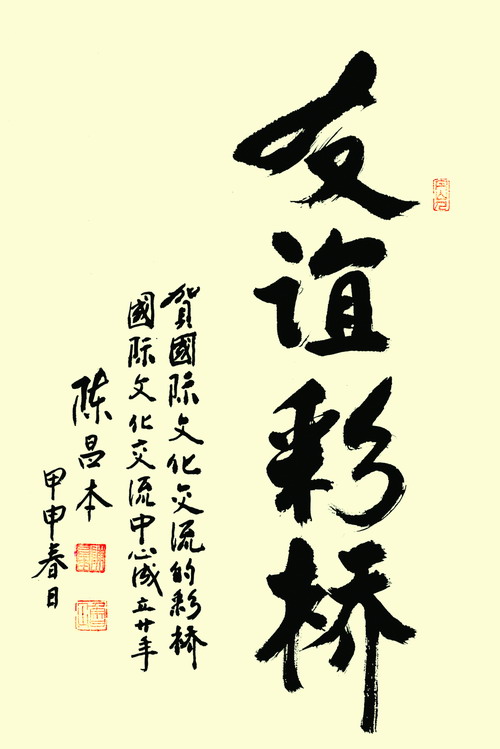 友谊彩桥
贺國际文化交流的彩桥
國际文化交流中心成立廿年
陈昌本
甲申春日